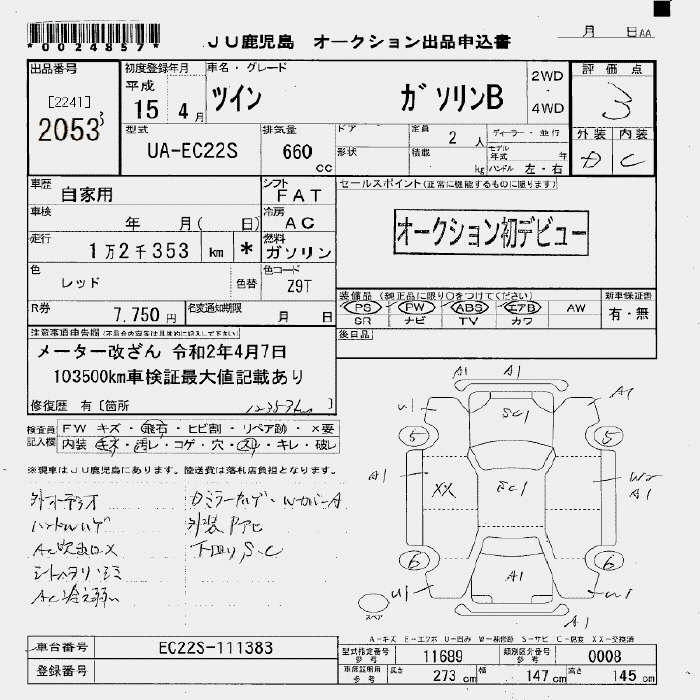 *0024857*
JU鹿児島 オークション出品申込書
月 日AA
出品番号
[2241]
2053
初度登録年月
平成
15 4月
車名・グレード
ツイン ガソリンB
2WD
・
4WD
評価点
3
型式
UA-EC22S
排気量
660
cc
ドア
形状
定員
2人
積載
kg
ディーラー・並行
モデル
年式 年
ハンドル 左・右
外装 内装
D C
車歴
自家用
シフト
FAT
車検
年 月( 日)
冷房
AC
走行
1万2千353 km *
燃料
ガソリン
色
レッド
色替
色コード
Z9T
R券
7.750円
名変通知期限
月 日
セールスポイント(正常に機能するものに限ります)
オークション初デビュー
装備品(純正品に限り○をつけてください)
PS PW ABS エアB AW
SR ナビ TV カワ
新車保証書
有・無
後日品
注意事項申告欄(不具合内容等は具体的に記入して下さい)
メーター改ざん 令和2年4月7日
103500km車検証最大値記載あり
修復歴 有〔箇所 12353km 〕
検査員
記入欄
FW キズ・飛石・ヒビ割・リペア跡・×要
内装 キズ・汚レ・コゲ・穴・スリ・キレ・破レ
※現車はJU鹿児島にあります。陸送費は落札店負担となります。
外オーデヲ
ハンドルハゲ
AC吹出口X
シートヘタリ・シミ
AC冷え弱い
外装
下回りS.C
A1 A1
U1 SC1 A1
5 5
A1 XX SC1 W2
A1
6 6
U1 A1 U1
A1
スペア
A-キズ E-エクボ U-凹み W-補修跡 S-サビ C-腐蝕 XX-交換済
車台番号
EC22S-111383
登録番号
型式指定番号
参考
11689
類別区分番号
参考
0008
車体証明
参考
長さ 273cm 幅 147cm 高さ 145cm